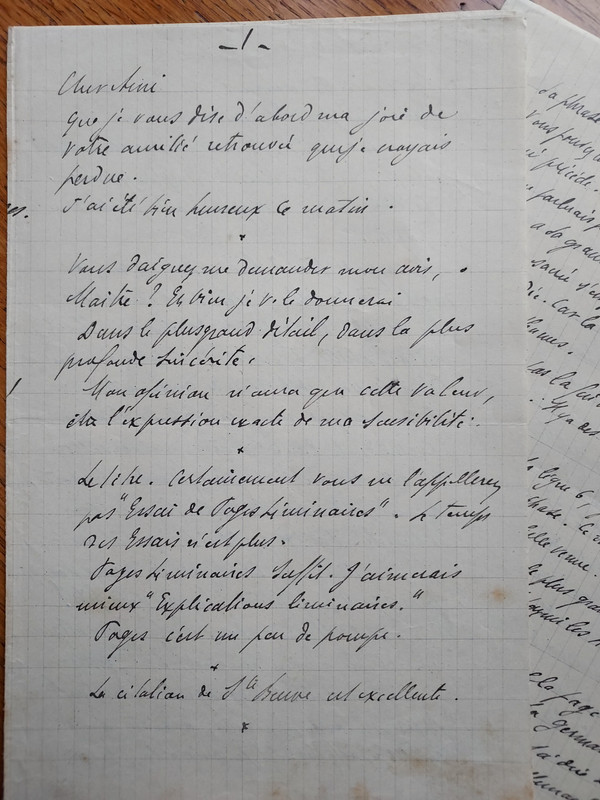 -1-
Cher Ami
que je vous dise d'abord ma joie de
votre amitié retrouvée que je croyais
perdue.
J'ai été bien heureux ce matin.
Vous daignez me demander mon avis,
Maître ? Eh bien je v. le donnerai
Dans le plus grand détail, dans la plus
profonde sincérité.
Mon opinion n'aura que cette valeur,
être l'expression exacte de ma sensibilité.
Le titre. Certainement vous ne l'appellerez
pas "Essai de Pages Liminaires". Le temps
des Essais n'est plus.
Pages Liminaires suffit. J'aimerais
mieux "Explications liminaires."
Pages c'est un peu de pompe.
La citation de Ste Beuve est excellente.
la phrase
Vous
précède.
parlerais
a sa
sacré s'en
Car la
la ligne 6
belle venue.
le plus
la page
la